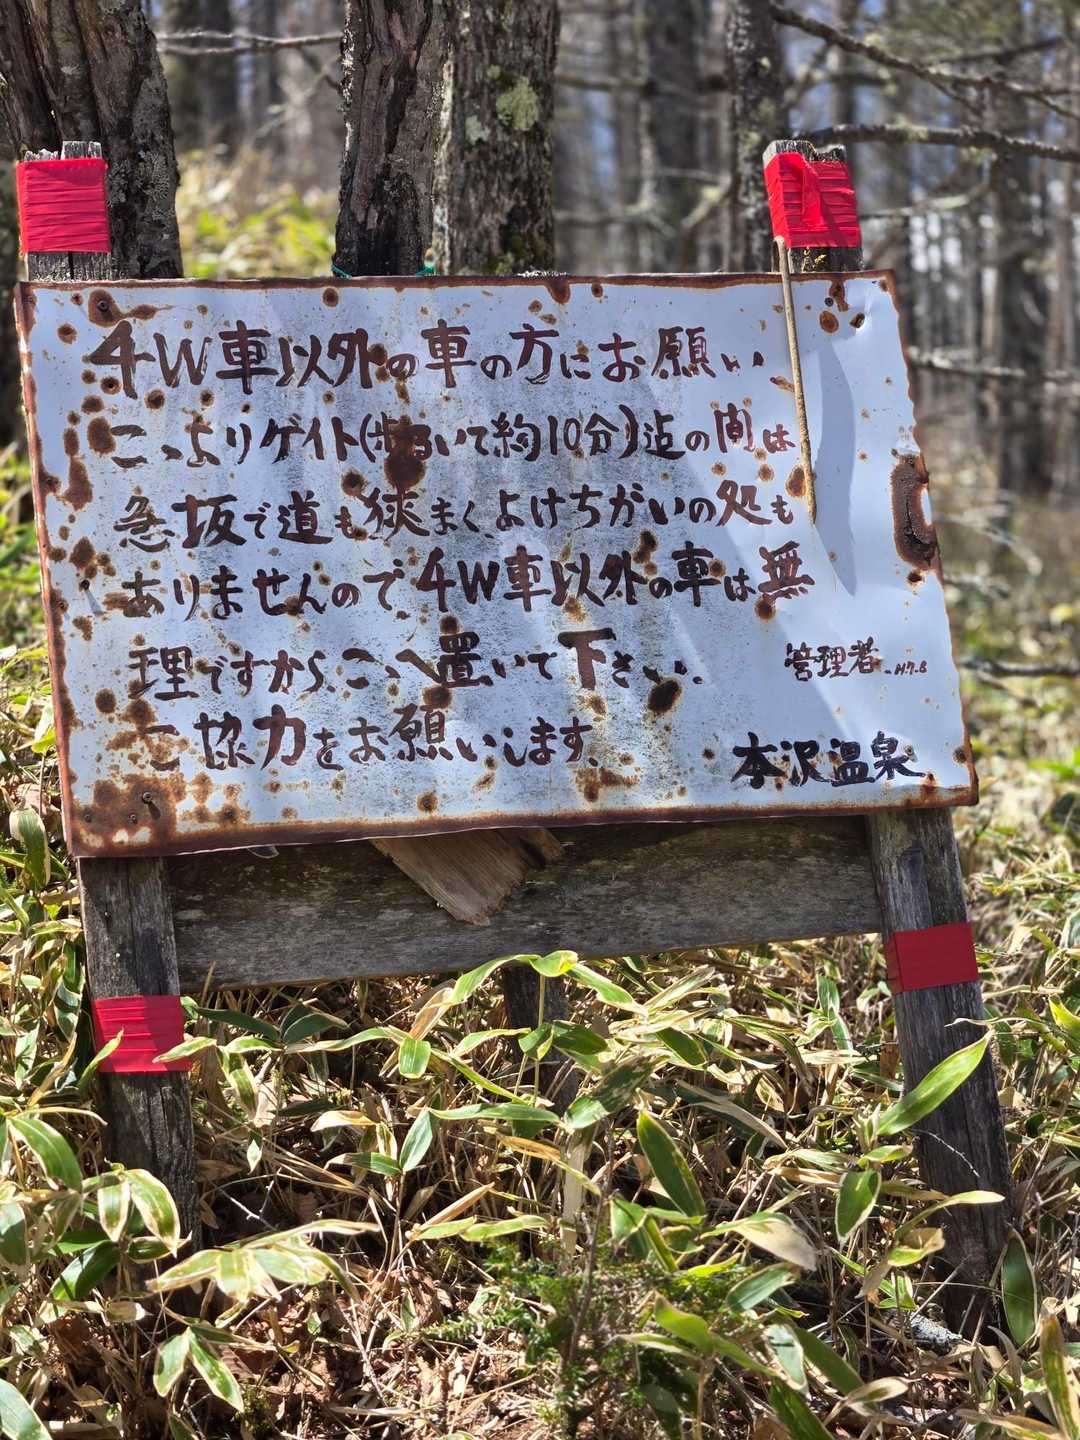 4W車以外の車の方にお願い
こゝよりゲイト(歩るいて約10分)迠の間は
急坂で道も狭まく、よけちがいの処も
ありませんので、4W車以外の車は無
理ですから、こゝへ置いて下さい。
ご協力をお願いします。
管理者 H.7.8
本沢温泉